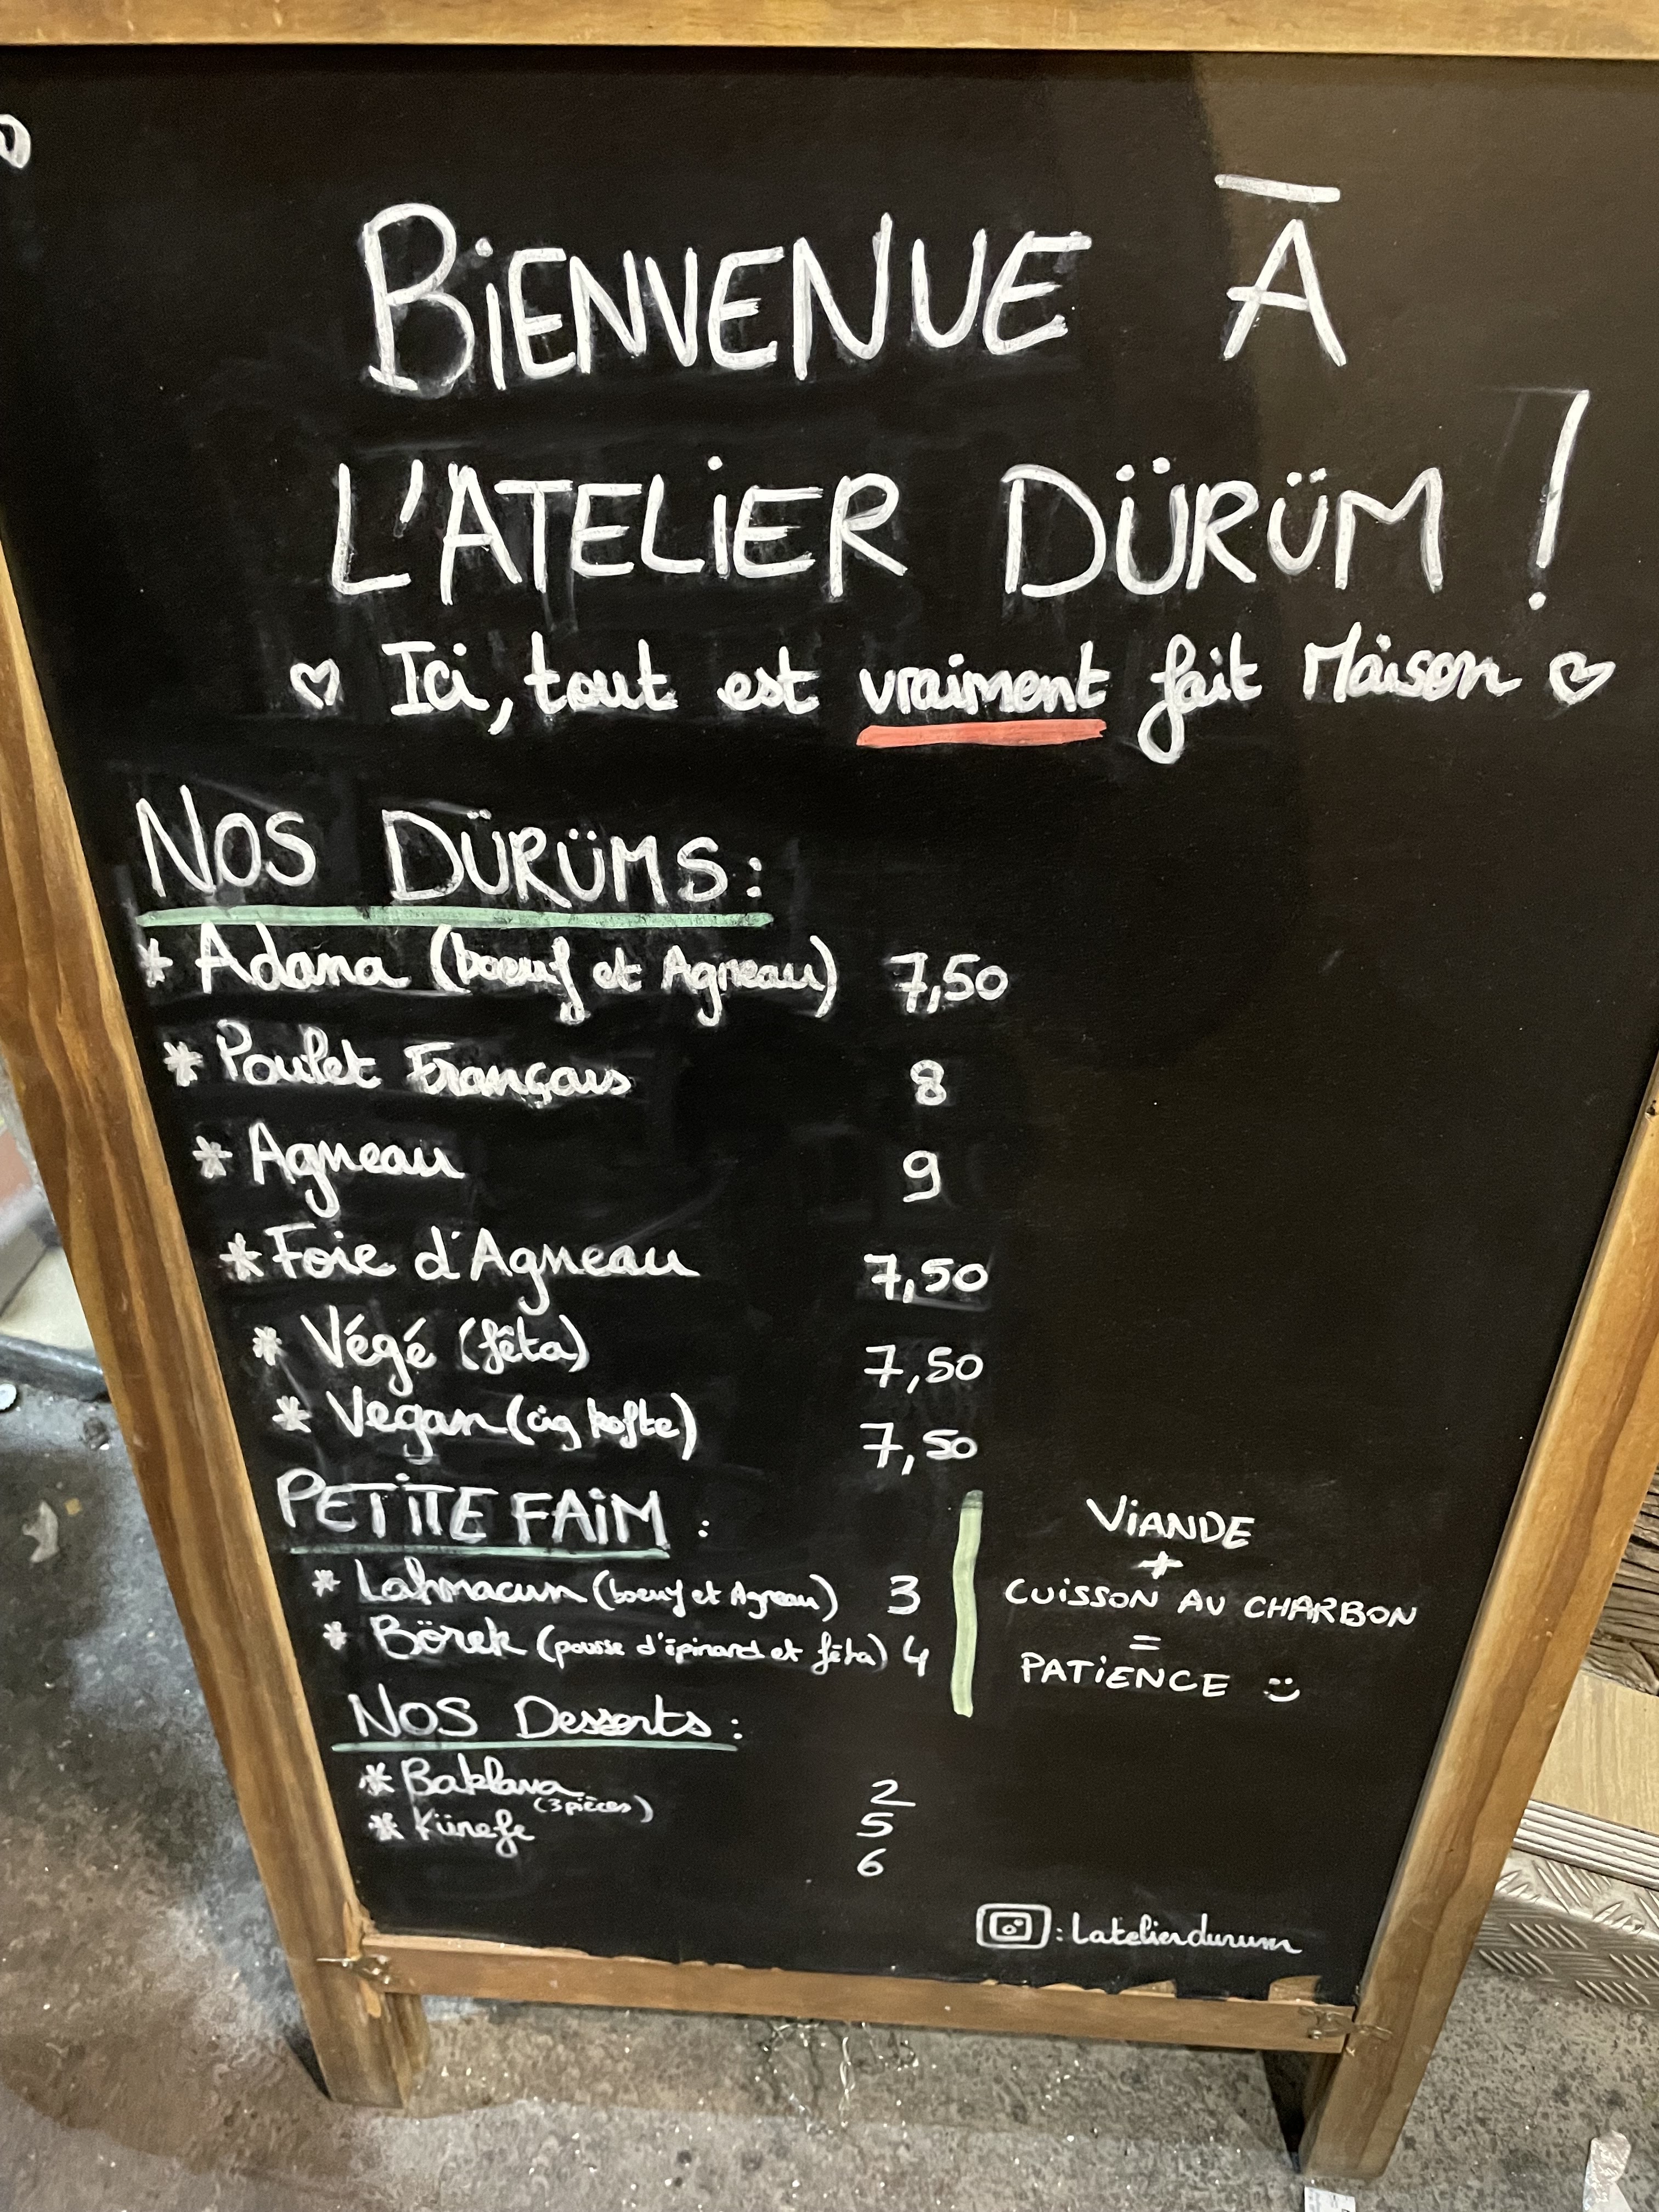 BIENVENUE À
L'ATELIER DÜRÜM !
♡ Ici, tout est vraiment fait Maison ♡
NOS DÜRÜMS :
* Adana (boeuf et Agneau) 7,50
* Poulet Français 8
* Agneau 9
* Foie d'Agneau 7,50
* Végé (fêta) 7,50
* Vegan (cig kofte) 7,50
PETITE FAIM :
* Lahmacun (boeuf et Agneau) 3
* Börek (pousse d'épinard et fêta) 4
VIANDE
+
CUISSON AU CHARBON
=
PATIENCE :)
NOS Desserts :
* Baklava 2
(3 pièces) 5
* Künefe 6
: Latelierdurum